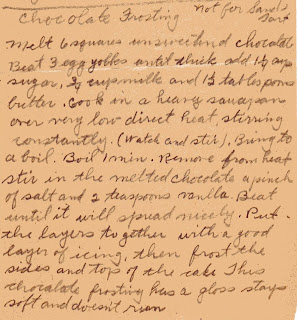 Chocolate Frosting
not for Sand
Tart
Melt 6 squares unsweetened chocolat
Beat 3 egg yolks until thick add 1½ cup
sugar, ¾ cup milk and 1½ tablespoons
butter. Cook in a heavy saucepan
over very low direct heat, stirring
constantly. (Watch and stir). Bring to
a boil. Boil 1 min. Remove from heat
stir in the melted chocolate a pinch
of salt and 2 teaspoons vanilla. Beat
until it will spread nicely. Put
the layers together with a good
layer of icing, then frost the
sides and top of the cake This
chocolate frosting has a gloss stays
soft and doesn't run